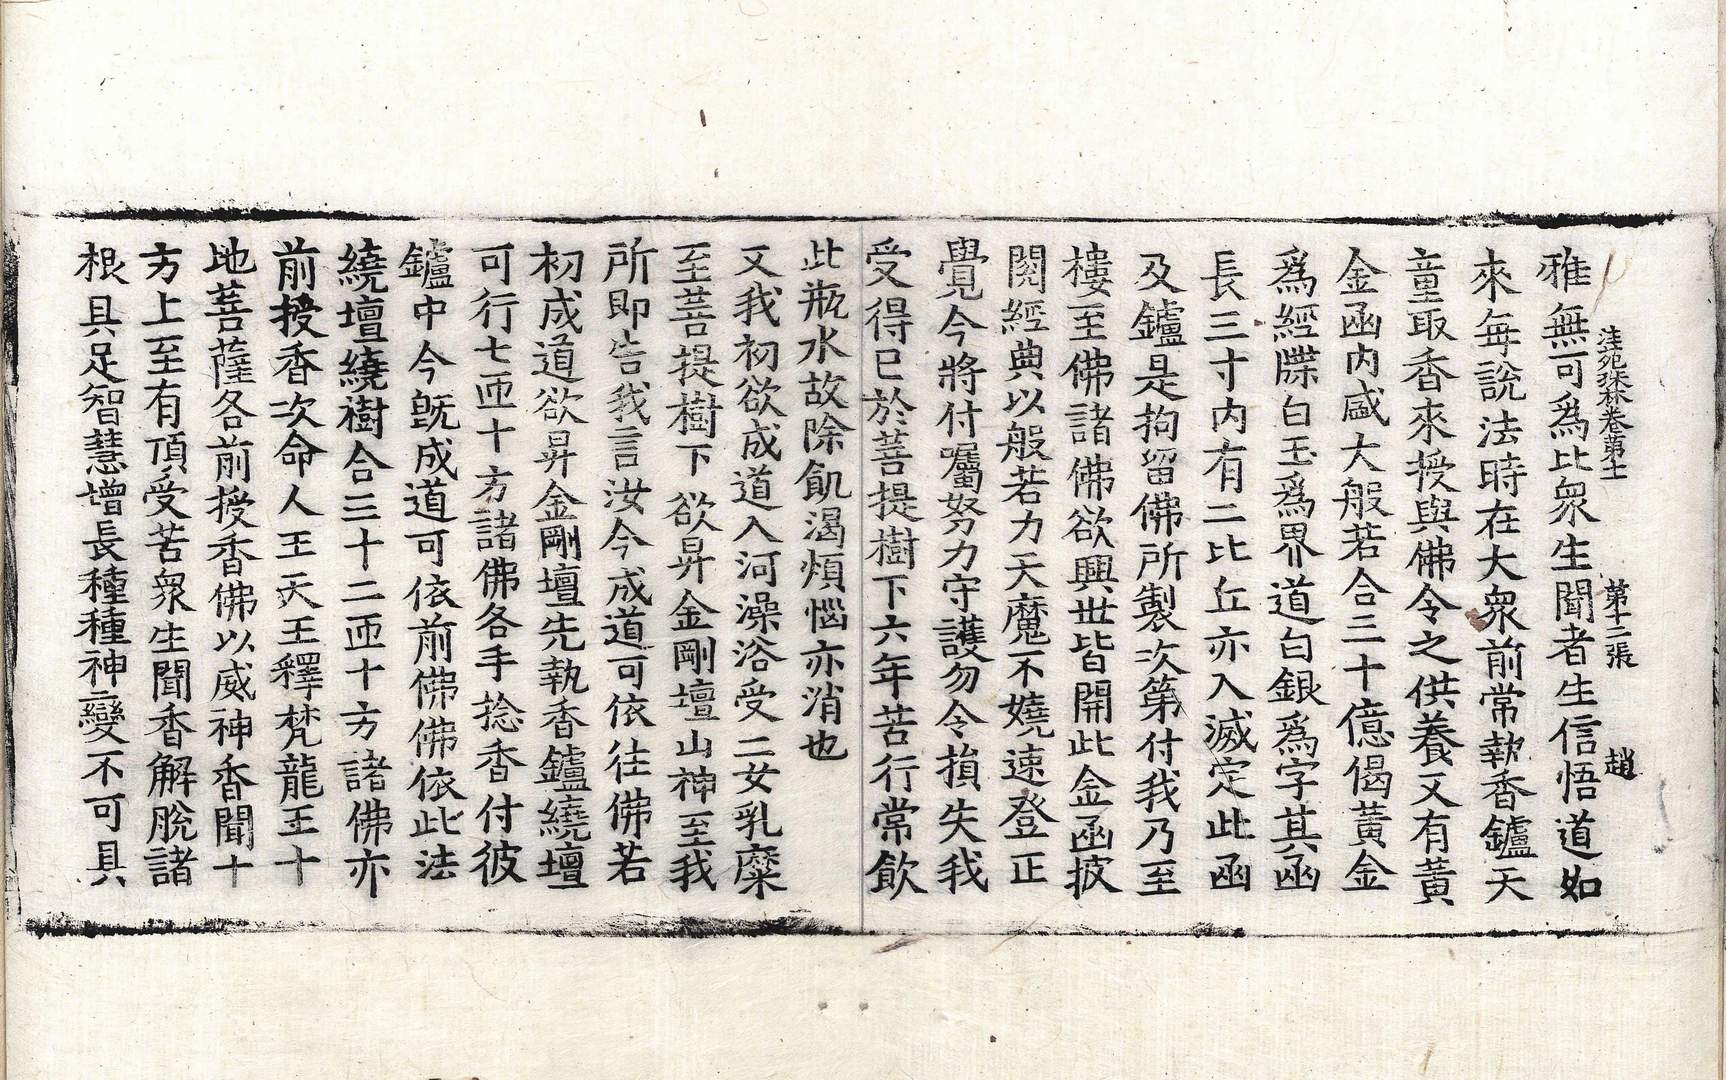 法苑珠林卷第十二 第十二張 趙
雅無可爲比衆生聞者生信悟道如
來每說法時在大衆前常執香鑪天
童取香來授與佛令之供養又有黃
金函內盛大般若合三十億偈黃金
爲經牒白玉爲界道白銀爲字其函
長三寸內有二比丘亦入滅定此函
及鑪是拘留佛所製次第付我乃至
樓至佛諸佛欲興世皆開此金函披
閱經典以般若力天魔不嬈速登正
覺今將付囑努力守護勿令損失我
受得已於菩提樹下六年苦行常飮
此瓶水故除飢渴煩惱亦消也
又我初欲成道入河澡浴受二女乳糜
至菩提樹下欲昇金剛壇山神至我
所即告我言汝今成道可依往佛若
初成道欲昇金剛壇先執香鑪繞壇
可行七匝十方諸佛各手捻香付彼
鑪中今旣成道可依前佛佛依此法
繞壇繞樹合三十二匝十方諸佛亦
前授香次命人王天王釋梵龍王十
地菩薩各前授香佛以威神香聞十
方上至有頂受苦衆生聞香解脫諸
根具足智慧增長種種神變不可具